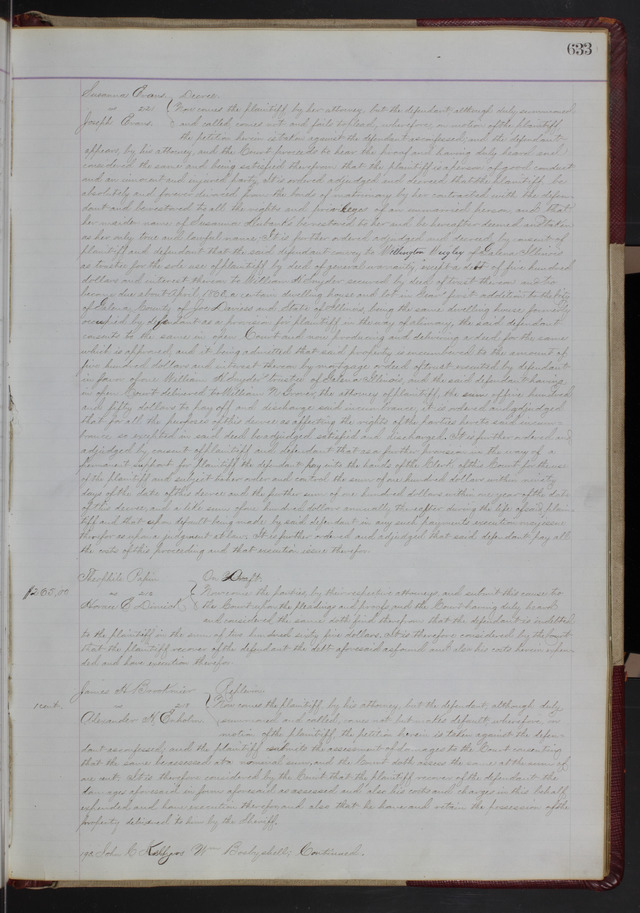 633
Susanna Evans } Decree.
vs } Now comes the plaintiff by her attorney, but the defendant although duly summoned
Joseph Evans. } and called, comes not and fails to plead, wherefore, on motion of the plaintiff,
the petition herein is taken against the defendant as confessed, and the defendant
appears, by his attorney, and the Court proceeds to hear the proof and having duly heard and
considered the same and being satisfied therefrom that the plaintiff is a person of good conduct
and an innocent and injured party, it is ordered adjudged and decreed that the plaintiff be
absolutely and forever divorced from the bonds of matrimony by her contracted with the defen-
dant and be restored to all the rights and privileges of an unmarried person and that
her maiden name of Susanna be restored to her and be hereafter deemed and taken
as her only true and lawful name. It is further ordered adjudged and decreed by consent of
plaintiff and defendant that the said defendant convey to Wellington Weigley of Galena Illinois
as trustee for the sole use of plaintiff by deed of general warranty except a debt of five hundred
dollars and interest thereon to William H Snyder secured by deed of trust thereon and to
become due about April 1880, a certain dwelling house and lot in first addition to the City
of Galena County of Jo Daviess and State of Illinois, being the same dwelling house formerly
occupied by defendant as a provision for plaintiff in the way of alimony, the said defendant
consents to the same in open Court and now producing and delivering a deed for the same
which is approved, and it being admitted that said property is incumbered to the amount of
five hundred dollars and interest thereon by mortgage or deed of trust executed by defendant
in favor of one William H Snyder trustee of Galena Illinois, and the said defendant having
in open Court delivered to William N Grover, the attorney of plaintiff, the sum of five hundred
and fifty dollars to pay off and discharge said incumbrance, it is ordered and adjudged
that for all the purposes of this decree as affecting the rights of the parties hereto said incum-
brance, so excepted in said deed be adjudged satisfied and discharged. It is further ordered and
adjudged by consent of plaintiff and defendant that as a further provision in the way of a
permanent support for plaintiff the defendant pay into the hands of the Clerk of this Court for the use
of the plaintiff and subject to her order and control the sum of one hundred dollars within ninety
days of the date of this decree and the further sum of one hundred dollars within one year of the date
of this decree, and a like sum of one hundred dollars annually thereafter during the life of said plain-
tiff and that upon default being made by said defendant in any such payments execution may issue
therefor as upon a judgment at law. It is further ordered and adjudged that said defendant pay all
the costs of this proceeding and that execution issue therefor.
Theophile Papin } On Draft.
$265.00 vs } Now come the parties, by their respective attorneys and submit this cause to
Horace E Dimick } the Court upon the pleadings and proofs, and the Court having duly heard
and considered the same doth find therefrom that the defendant is indebted
to the plaintiff in the sum of two hundred sixty five dollars. It is therefore considered by the Court
that the plaintiff recover of the defendant the debt aforesaid as found and also his costs herein expen-
ded and have execution therefor.
James H Brookmire } Replevin
1 cent. vs } Now comes the plaintiff by his attorney, but the defendant, although duly
Alexander H } summoned and called, comes not but makes default, wherefore, on
motion of the plaintiff, the petition herein is taken against the defen-
dant as confessed, and the plaintiff submits the assessment of damages to the Court consenting
that the same be assessed at a nominal sum, and the Court doth assess the same at the sum of
one cent. It is therefore considered by the Court that the plaintiff recover of the defendant the
damages aforesaid in form aforesaid as assessed and also his costs and charges in this behalf
expended and have execution therefor and also that he have and retain the possession of the
property delivered to him by the Sheriff.
190 John C Wm Continued.